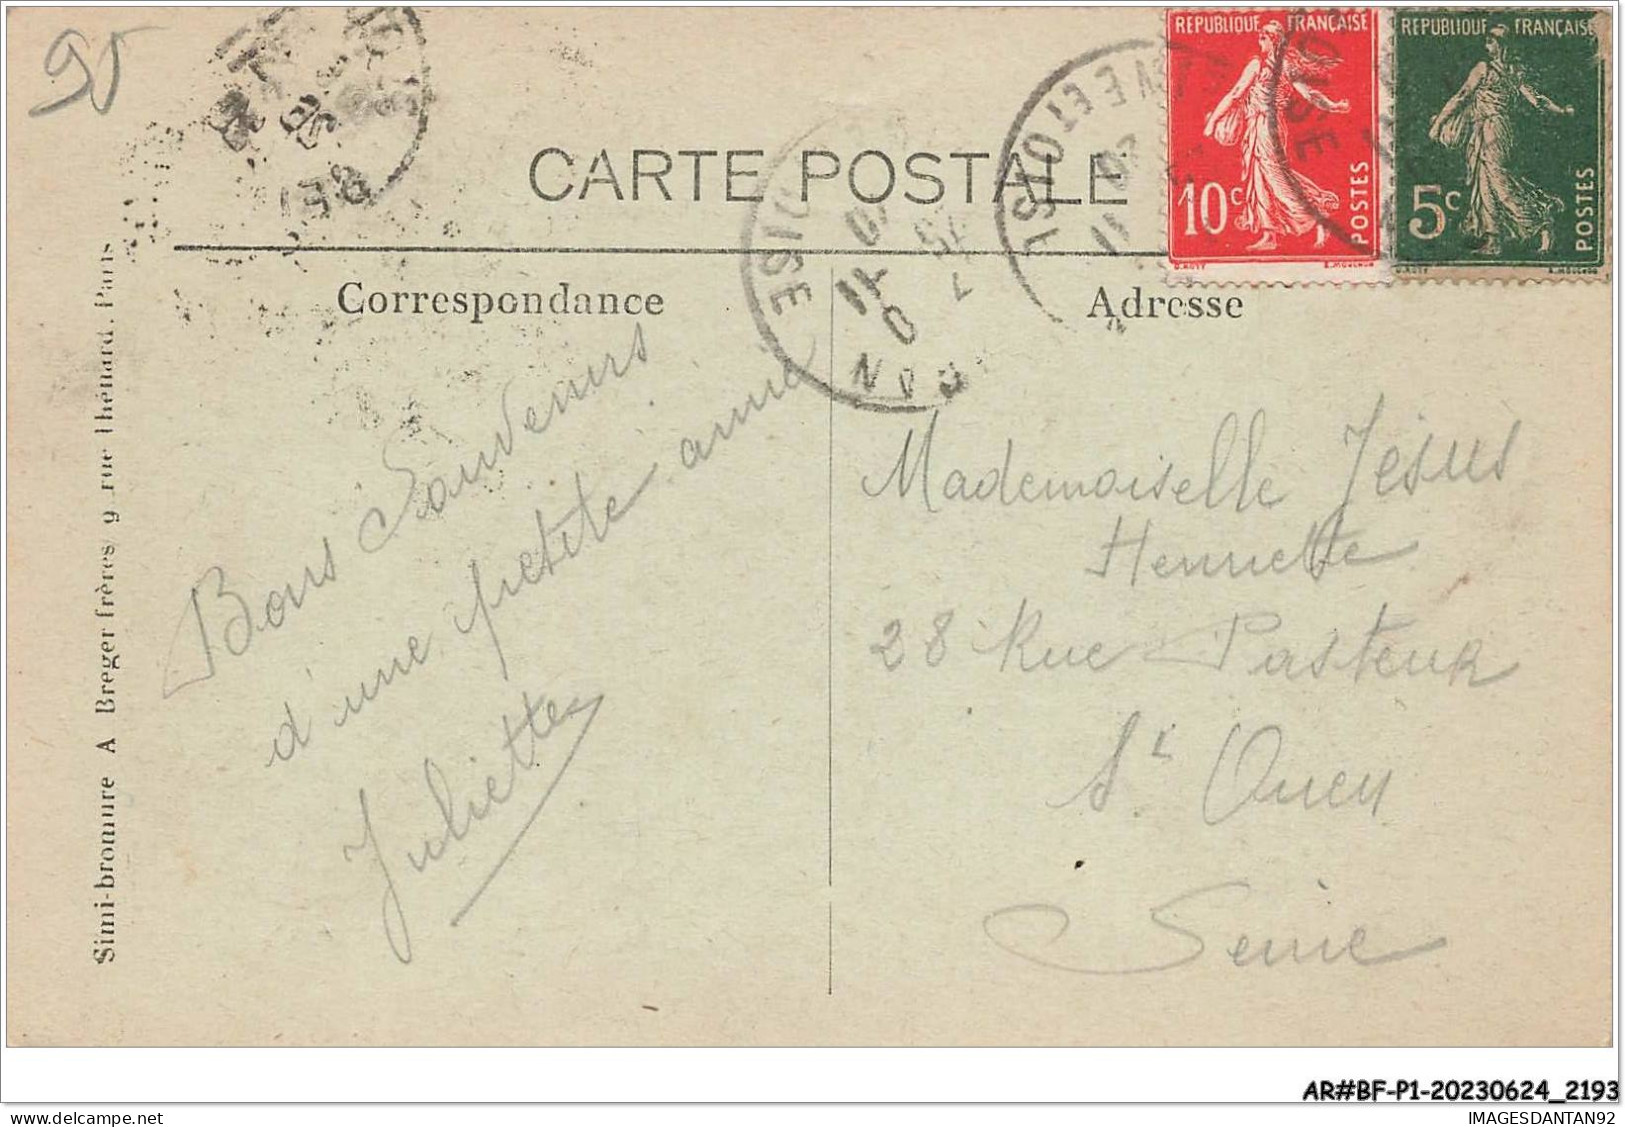 95
RÉPUBLIQUE FRANÇAISE
10c
POSTES
RÉPUBLIQUE FRANÇAISE
5c
POSTES
SEINE ET OISE
OISE
OISE
CARTE POSTALE
Correspondance
Adresse
Bons Souvenirs
d'une petite amie
Juliette
Mademoiselle Jésus
Henriette
28 Rue Pasteur
St Ouen
Seine
Simi-bromure A Breger frères, 9 rue Thénard. Paris
AR#BF-P1-20230624_2193
IMAGESDANTAN92